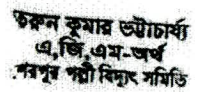 তরুন কুমার ভট্টাচার্য্য
এ,জি,এম-অর্থ
শেরপুর পল্লী বিদ্যুৎ সমিতি